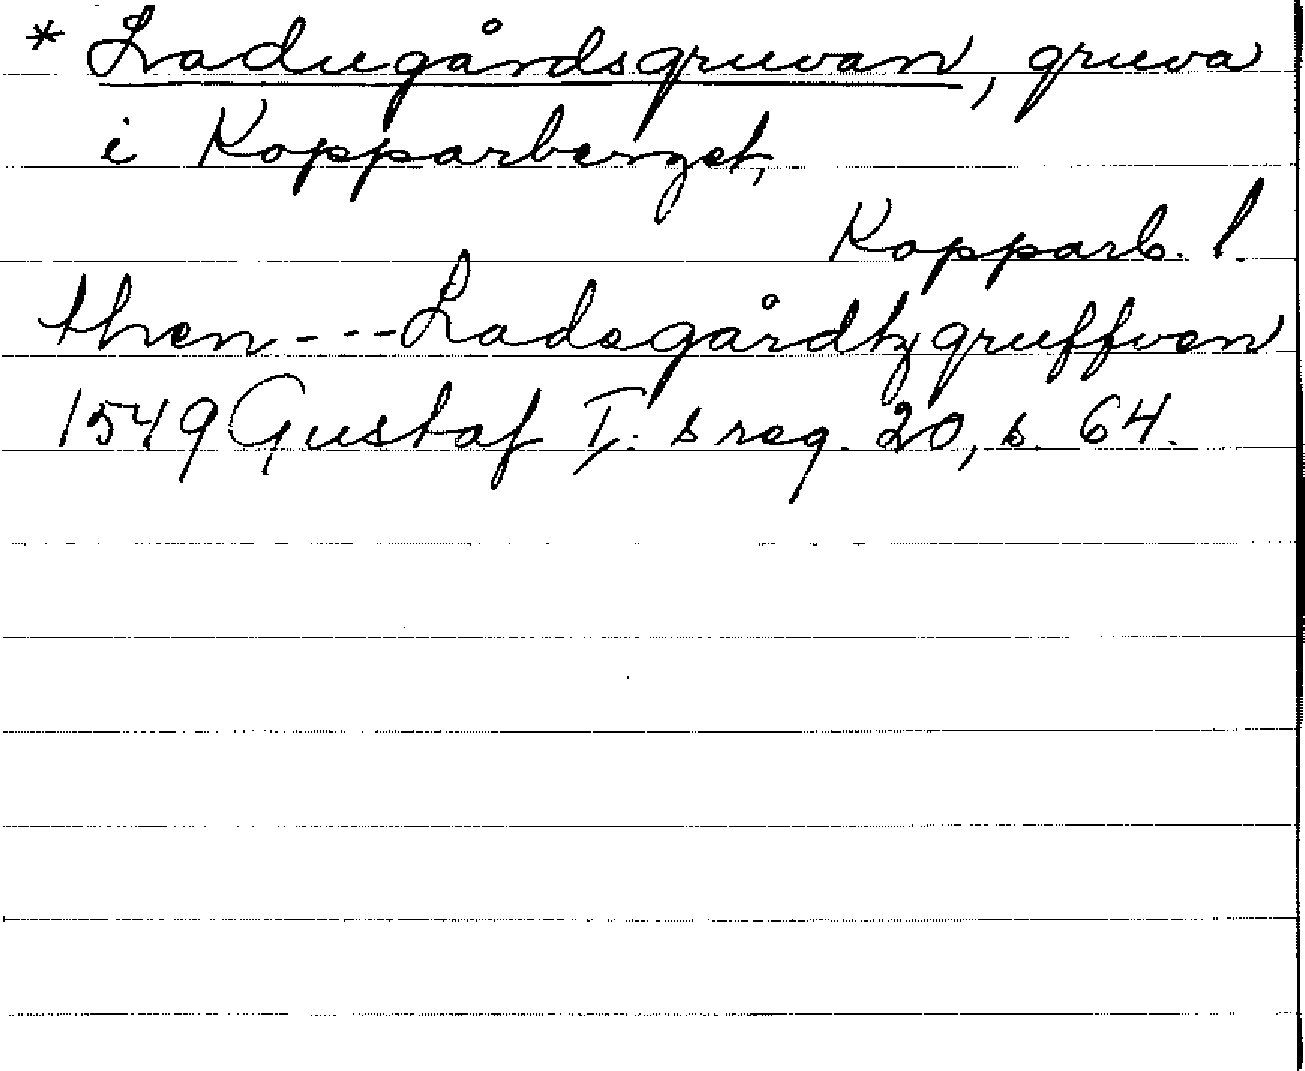 * Ladugårdsgruvan, gruva
i Kopparberget,
Kopparb. l.
then --- Ladegårdtzgruffven
1549 Gustaf I:s reg. 20, s. 64.